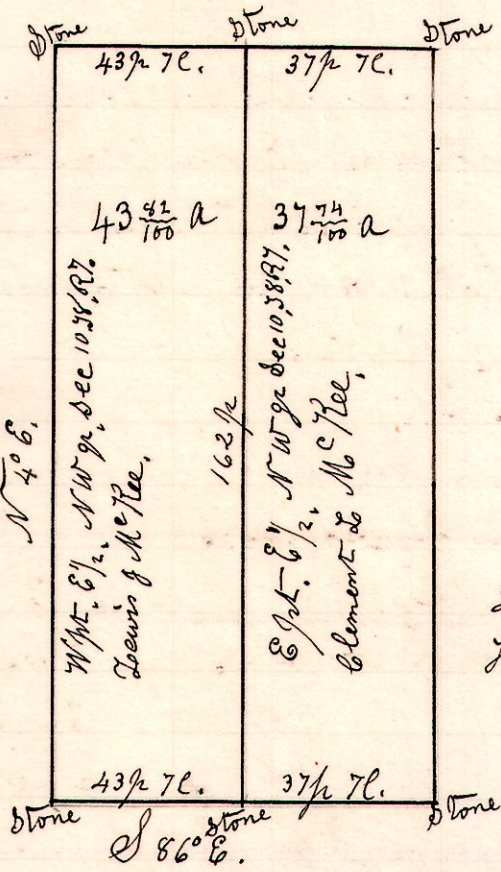 Stone Stone Stone
43p 7l. 37p 7l.
43 82/100 a 37 74/100 a
N 4° E.
W pt. E 1/2, N W qr. Sec 10, T8, R7.
Lewis J McKee.
162p
E pt. E 1/2, N W qr Sec 10, T8, R7.
Clement L McKee.
43p 7l. 37p 7l.
Stone Stone Stone
S 86° E.